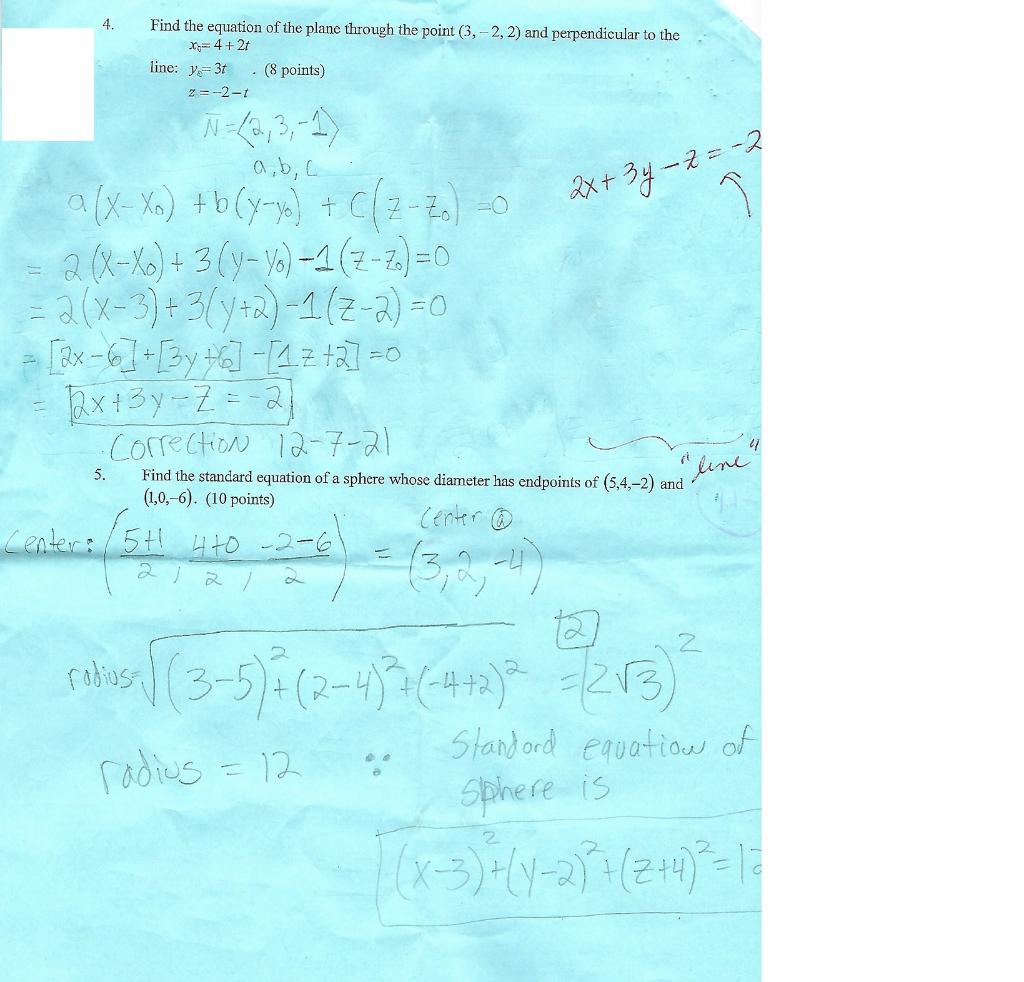 4. Find the equation of the plane through the point (3, – 2, 2) and perpendicular to the
x= 4 + 2t
line: y= 3t . (8 points)
z = –2 – t
N̅=⟨2,3,-1⟩
a,b,c
a(x-x₀) +b(y-y₀) + C(z-z₀) =0
2x+3y-z=-2
= 2(x-x₀)+3(y-y₀)-1(z-z₀)=0
= 2(x-3)+3(y+2)-1(z-2)=0
= [2x-6]+[3y+6]-[1z+2]=0
= 2x+3y-z=-2
Correction 12-7-21
"line"
5. Find the standard equation of a sphere whose diameter has endpoints of (5,4,–2) and
(1,0,–6). (10 points)
Center @
Center: (5+1/2, 4+0/2, -2-6/2) = (3,2,-4)
12
radius=√(3-5)²+(2-4)²+(-4+2)² =(2√3)²
radius = 12 ∵ Standord equation of
sphere is
(x-3)²+(y-2)²+(z+4)²=12